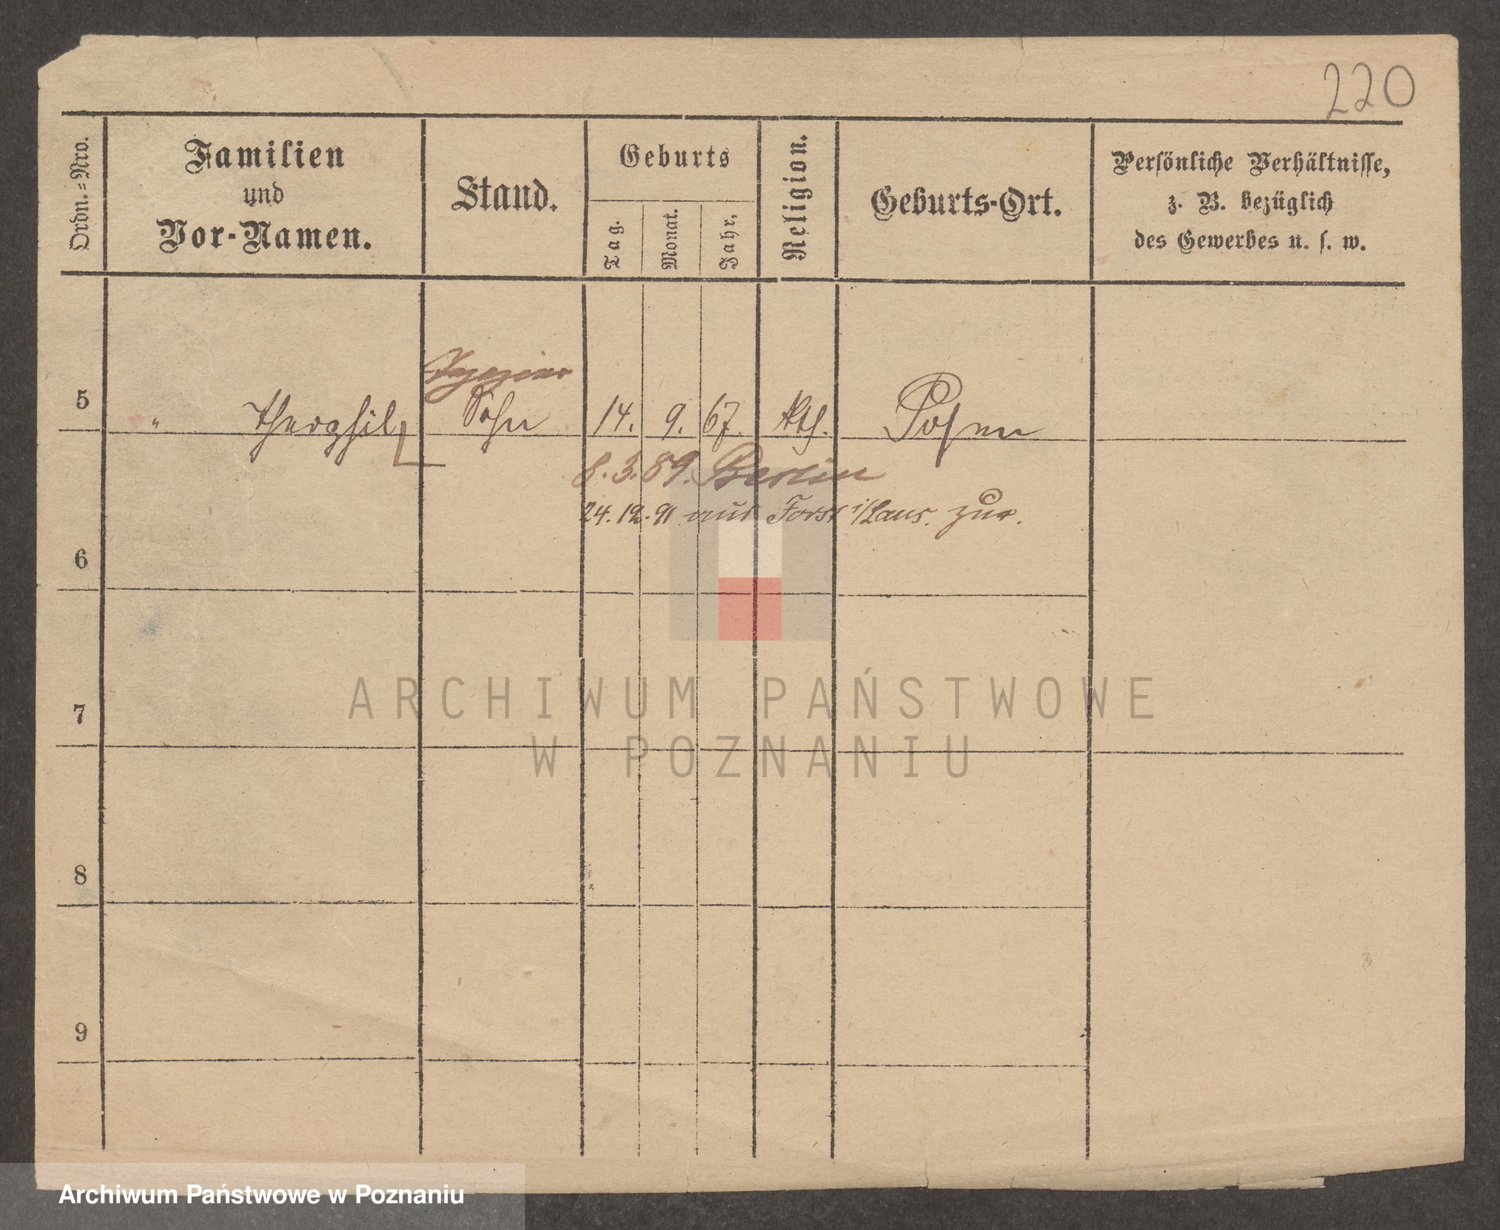 220
Ordn.=Nro.
Familien
und
Vor-Namen.
Stand.
Geburts
Tag.
Monat.
Jahr.
Religion.
Geburts-Ort.
Persönliche Verhältnisse,
z. B. bezüglich
des Gewerbes u. s. w.
5 " Theophil Sohn 14. 9. 67. Kth. Posen
8.3.89. Berlin
24.12.91 aus Forst i/Laus. zur.
6
7
8
9
ARCHIWUM PAŃSTWOWE
W POZNANIU
Archiwum Państwowe w Poznaniu